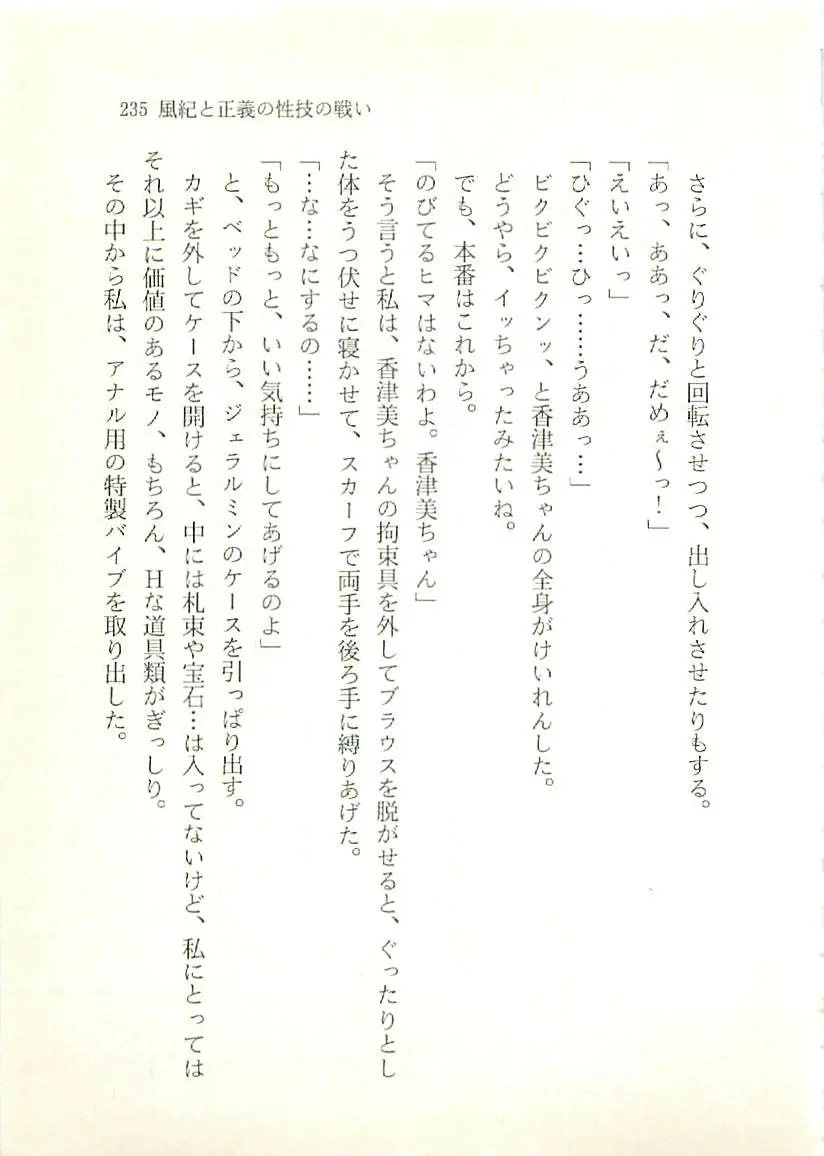 235 風紀と正義の性技の戦い
さらに、ぐりぐりと回転させつつ、出し入れさせたりもする。
「あっ、ああっ、だ、だめぇ〜っ！」
「えいえいっ」
「ひぐっ…ひっ……うああっ…」
ビクビクビクンッ、と香津美ちゃんの全身がけいれんした。
どうやら、イッちゃったみたいね。
でも、本番はこれから。
「のびてるヒマはないわよ。香津美ちゃん」
そう言うと私は、香津美ちゃんの拘束具を外してブラウスを脱がせると、ぐったりとし
た体をうつ伏せに寝かせて、スカーフで両手を後ろ手に縛りあげた。
「…な…なにするの……」
「もっともっと、いい気持ちにしてあげるのよ」
と、ベッドの下から、ジェラルミンのケースを引っぱり出す。
カギを外してケースを開けると、中には札束や宝石…は入ってないけど、私にとっては
それ以上に価値のあるモノ、もちろん、Ｈな道具類がぎっしり。
その中から私は、アナル用の特製バイブを取り出した。